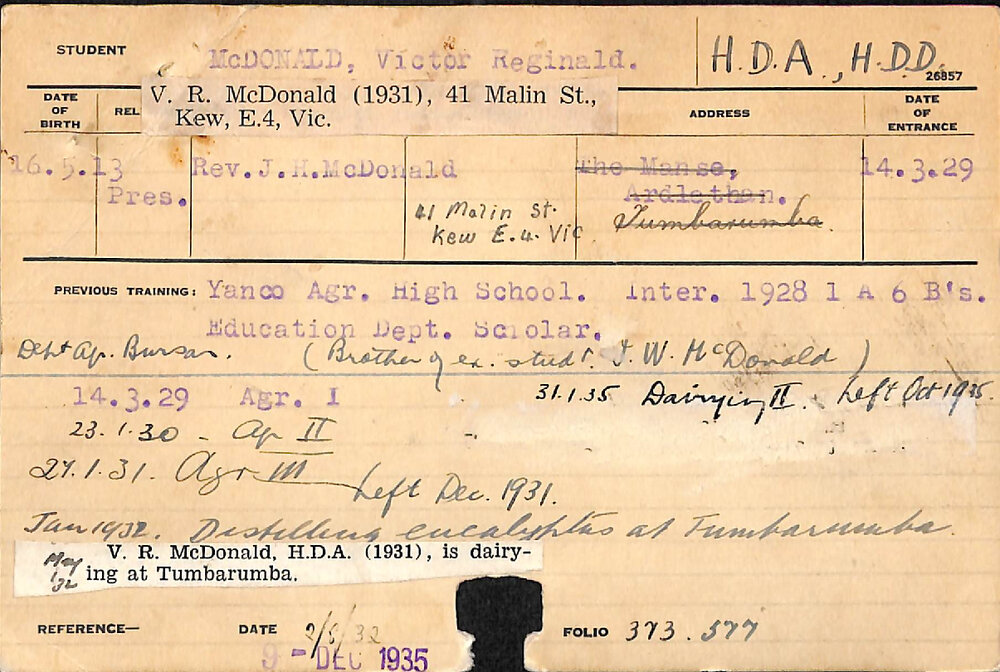 STUDENT McDONALD, Victor Reginald. H.D.A., H.D.D.
26857
V. R. McDonald (1931), 41 Malin St.,
Kew, E.4, Vic.
DATE OF BIRTH REL ADDRESS DATE OF ENTRANCE
16.5.13 Pres. Rev.J.H.McDonald The Manse, Ardlethan. 14.3.29
41 Malin St. Kew E.4. Vic Tumbarumba
PREVIOUS TRAINING: Yanco Agr. High School. Inter. 1928 1 A 6 B's.
Education Dept. Scholar.
Dept Ag. Bursar. (Brother of ex. studt. J. W. McDonald)
14.3.29 Agr. I 31.1.35 Dairying II. Left Oct 1935.
23.1.30 - Ag II
27.1.31. Agr III Left Dec. 1931.
Jan 1932. Distilling eucalyptus at Tumbarumba.
May '32 V. R. McDonald, H.D.A. (1931), is dairy-
ing at Tumbarumba.
REFERENCE— DATE 2/5/32 FOLIO 373. 577
9 - DEC 1935